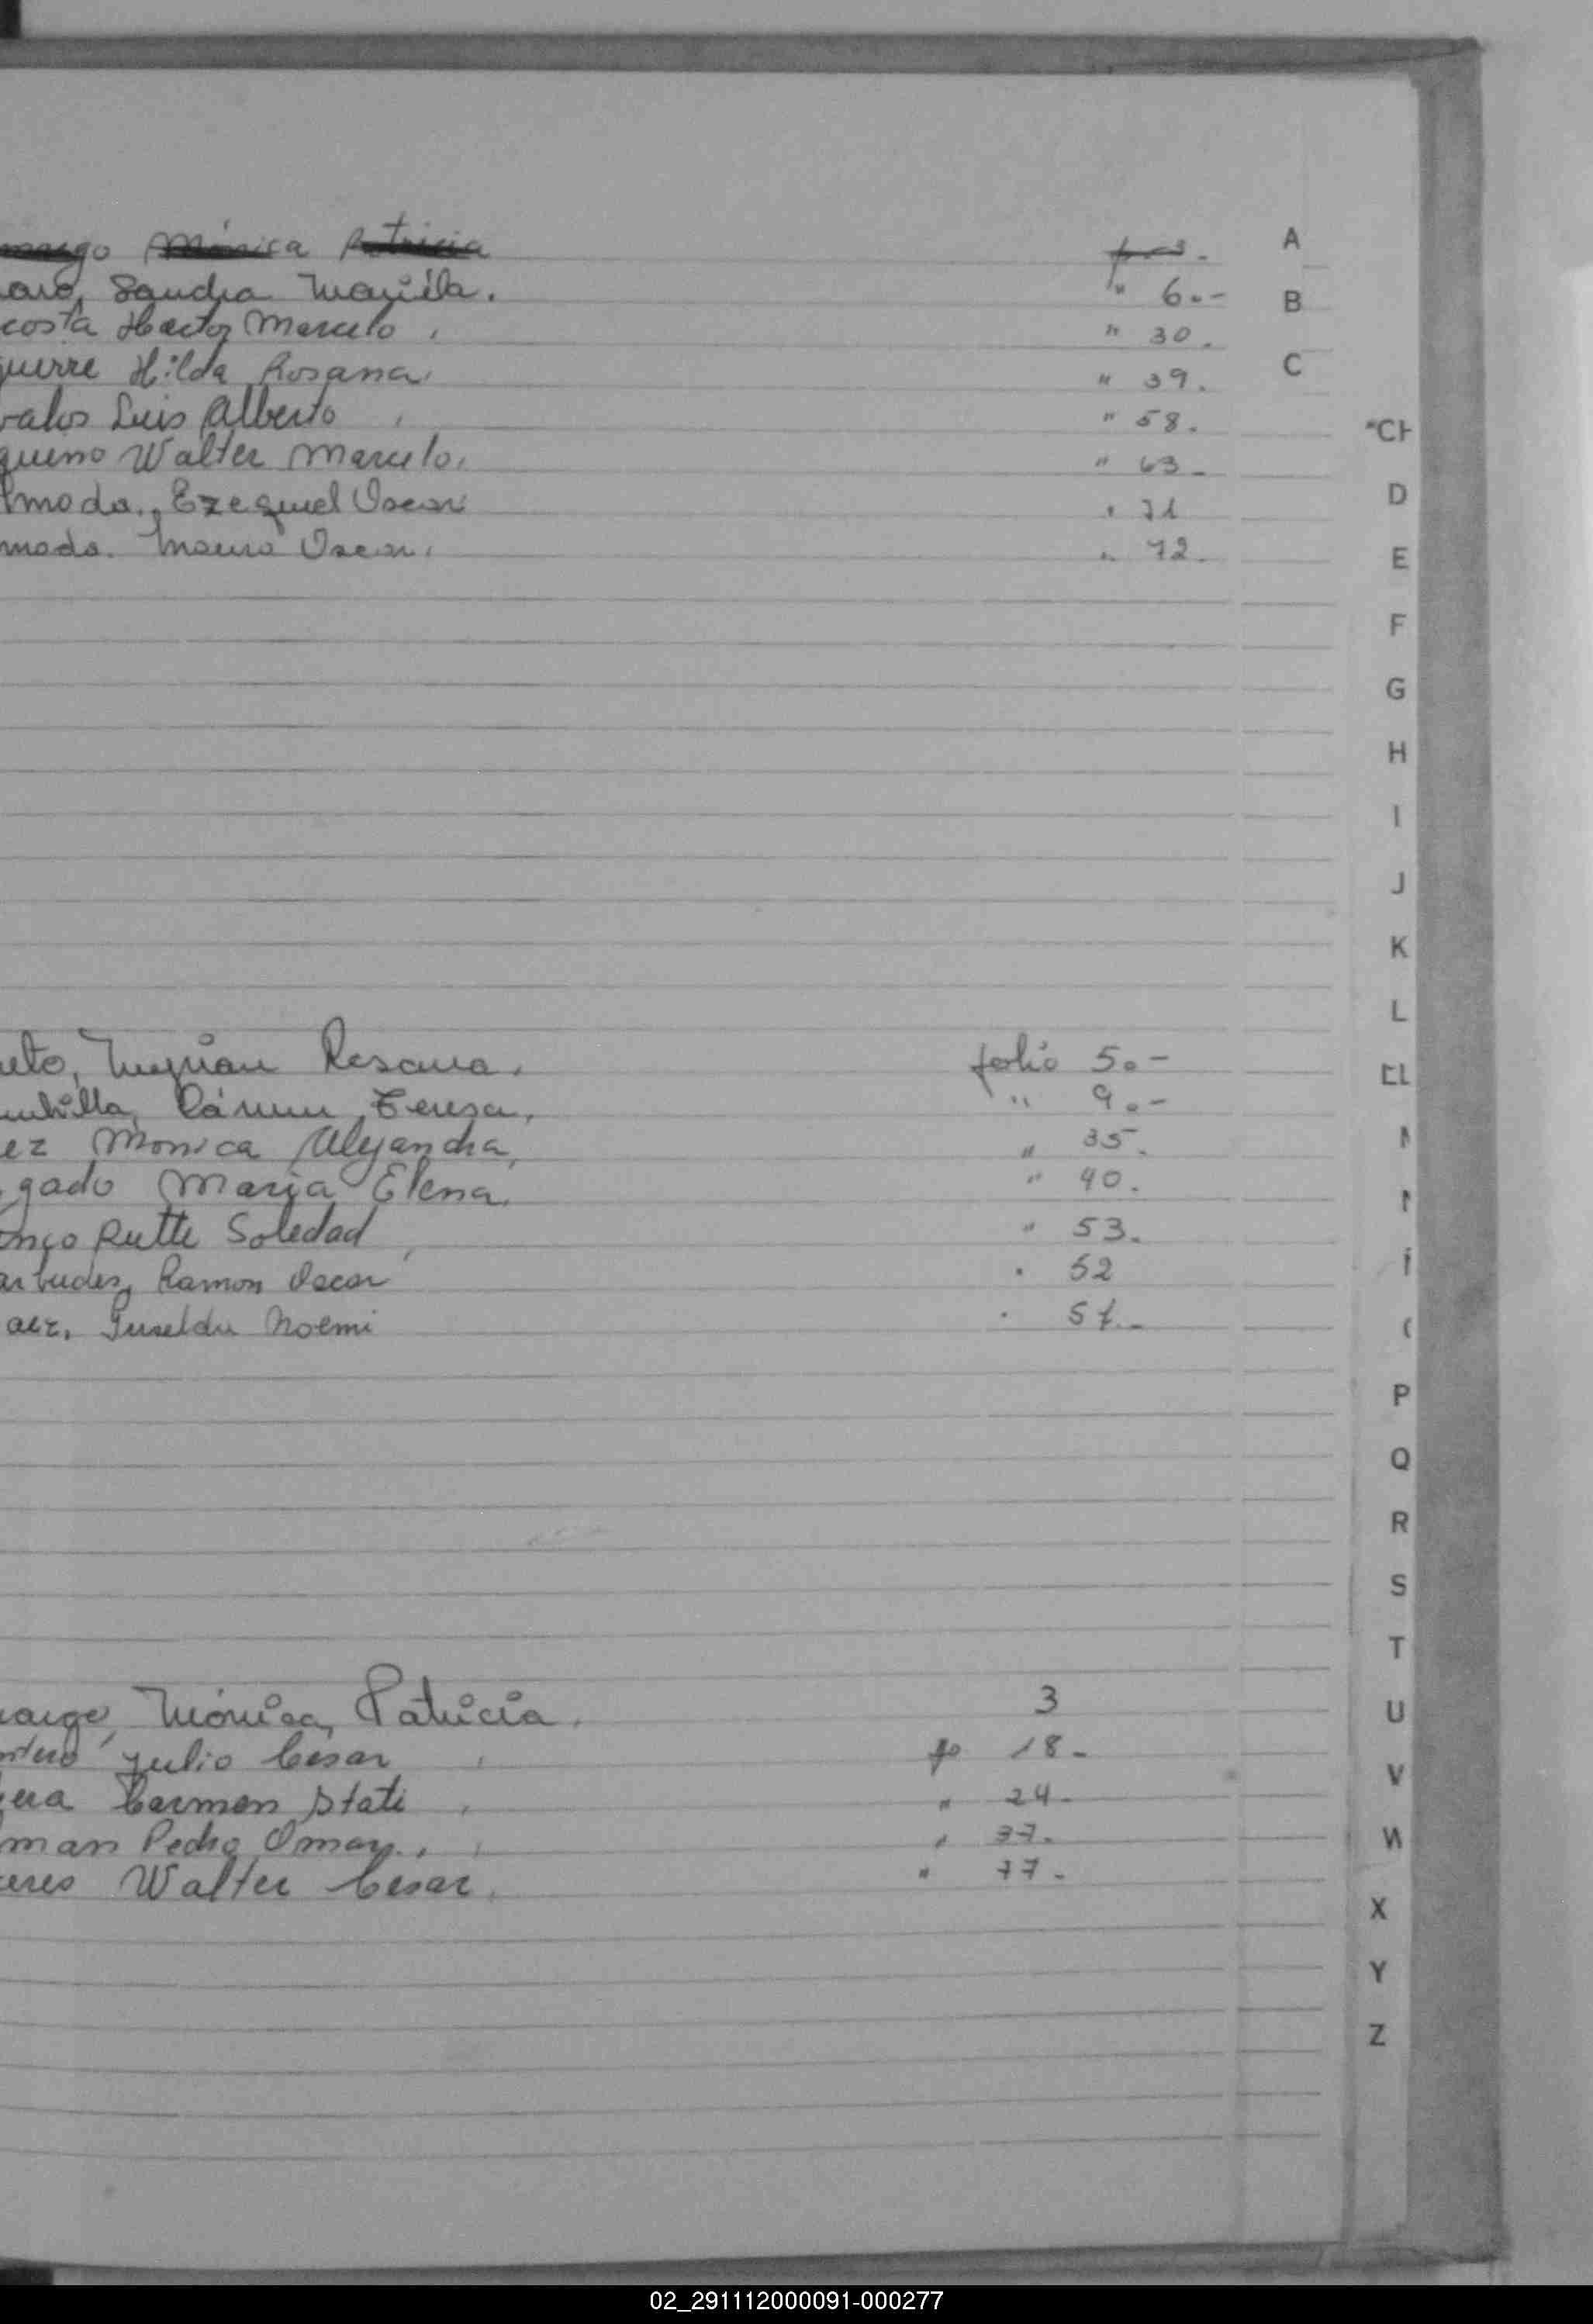 go Mónica Patricia
Sandra Mariéla. " 6.-
costa Hector Marcelo, " 30.
guerre Hilda Rosana. " 39.
valos Luis Alberto, " 58.
queno Walter Marcelo, " 63-
lmada., Ezequiel Oscar. " 71
mada. Mauro Oscar. " 72.
A
B
C
"CH
D
E
F
G
H
I
J
K
L
LL
P
Q
R
S
T
U
V
W
X
Y
Z
eto, Myrian Rosana. folio 5.-
Teresa, " 9.-
ez Monica Alejandra, " 35.
gado Maria Elena. " 40.
anco Rutte Soledad, " 53.
Ramon Oscar . 52
aez. Noemi . 57.-
Mónica, Patricia. 3
ntero Julio Cesar, fo 18-
era Carmen Stati, " 24-
man Pedro Omar., " 37.
ceres Walter Cesar. " 77-
02_291112000091-000277